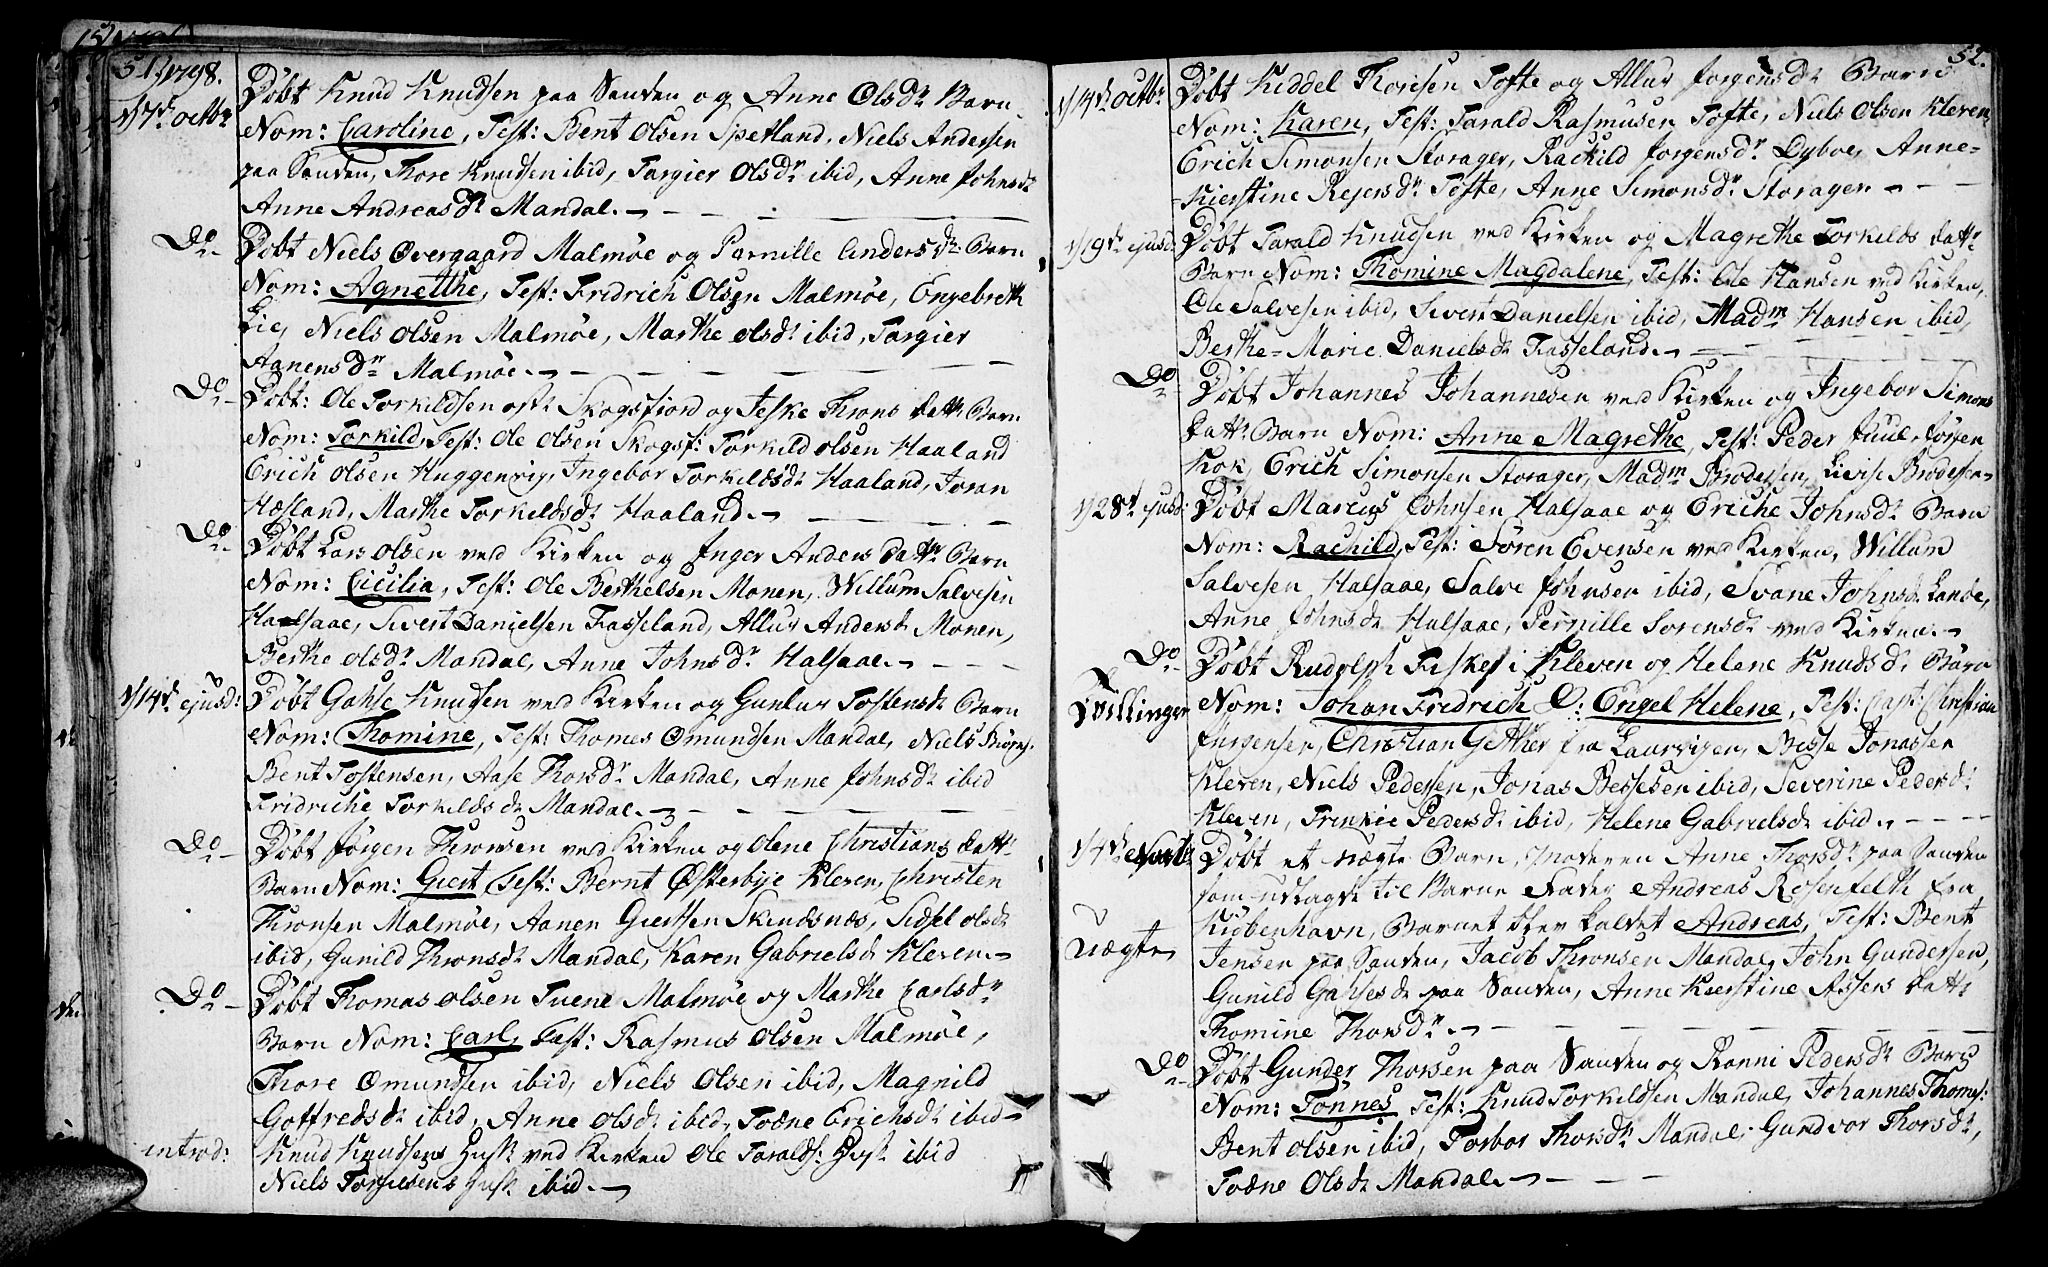 51. 1798.
d/7d. octbr.
Døbt Knud Knudsen paa Sanden og Anne Olsdr. Barn
Nom: Caroline, Test: Bent Olsen Spetland, Niels Andersen
paa Sanden, Thore Knudsen ibid, Targier Olsdr. ibid, Anne Johnsdr.
Anne Andreasdr. Mandal.
Do.
Døbt Niels Overgaard Malmøe og Pernille Andersdr. Barn
Nom: Agnetthe, Test: Fridrich Olsen Malmøe, Engebreth
Lie, Niels Olsen Malmøe, Marthe olsdr. ibid, Targier
Aanensdr. Malmøe.
Do.
Døbt: Ole Torkildsen Skogsfiord og Teske Throns datt. Barn
Nom: Torkild, Test: Ole Olsen Skogsf: Torkild olsen Haaland
Erich Olsen Huggenvig, Ingebor Torkildsdr. Haaland, Joran
Hæsland, Marthe Torkildsdr. Haaland.
Do.
Døbt Lars Olsen ved Kirken og Inger Anders datr. Barn
Nom: Cicilia, Test: Ole Berthelsen Monen, Willum Salvesen
Halsaae, Sivert Danielsen Fasseland, Allur Andersdr. Monen,
Berthe olsdr. Mandal, Anne Johnsdr. Halsaae.
d/14d. ejusd:
Døbt Gahse Knudsen ved Kirken og Gunlur Tostensdr. Barn
Nom: Thomine, Test: Thomes Omundsen Mandal, Niels
Bent Tostensen, Aase Thorsdr. Mandal, Anne Johnsdr. ibid
Fridriche Torkildsdr. Mandal.
Do.
Døbt Jørgen Thronsen ved Kirken og Olene Christians datt.
Barn Nom: Giert, Test: Bernt Østerbye Kleven, Christen
Thronsen Malmøe, Aanen Giertsen Skindsnæs, Sidsel olsdr.
ibid, Gunild Thronsdr. Mandal, Karen Gabrielsdr. Kleven.
Do.
Døbt Thomas olsen Tuene Malmøe og Marthe Carlsdr.
Barn Nom: Carl, Test: Rasmus Olsen Malmøe,
Thore Omundsen ibid, Niels Olsen ibid, Magnild
Goffredsdr. ibid, Anne Olsdr. ibid, Todne Erichsdr. ibid
introd:
Knud Knudsens Hust. ved Kirken Ole Taralds: Hust. ibid
Niels Torjusens Hust. ibid.
52.
d/14d. octbr.
Døbt Kiddel Thorsen Tofte og Allur Jorgensdr. Barn
Nom: Karen, Test: Tarald Rasmusen Tofte, Niels Olsen Kleven,
Erich Simonsen Storager, Rachild Jorgensdr. Dyboe, Anne-
Kierstine Rejersdr. Tofte, Anne Simonsdr. Storager
d/19d. ejusd.
Døbt Tarald Knudsen ved Kirken og Magrethe Torkilds datr.
Barn Nom: Thomine Magdalene, Test: Ole Hansen ved Kirken,
Ole Salvesen ibid, Sivert Danielsen ibid, Madm. Hansen ibid,
Berthe-Marie Danielsdr. Fasseland.
Do.
Døbt Johannes Johannesen ved Kirken og Ingebor Simons
datt. Barn Nom: Anne Magrethe, Test: Peder Juul, Jørgen
Kok, Erich Simonsen Storager, Madm. Brodersen, Livise Brodersen
d/28d. ejusd:
Døbt Marcus Johnsen Halsaae og Eriche Johnsdr. Barn
Nom: Rachild, Test: Søren Evensen ved Kirken, Willum
Salvesen Halsaae, Salve Johnsen ibid, Svane Johnsdr. Lande,
Anne Johnsdr. Halsaae, Pernille Sorensdr. ved Kirken.
Do.
Tvillinger
Døbt Rudolph Fisker i Kleven og Helene Knudsdr. Børn
Nom: Johan Fredrich &: Engel Helene, Test: Capt: Christian
Jurgensen, Christian Gether fra Laurvigen, Besse Jonassen
Kleven, Niels Pedersen, Jonas Bessesen ibid, Severine Pedersdr.
Kleven, Frenkie Pedersdr. ibid, Helene Gabrielsdr. ibid.
d/4d. Novbr.
Uægte
Døbt et uægte Barn, Moderen Anne Thorsdr. paa Sanden
som udlagde til Barne Fader Andreas Rosenfelth fra
Kiøbenhavn, Barnet blev kaldet Andreas, Test: Bent
Jensen paa Sanden, Jacob Thronsen Mandal, John Gundersen,
Gunild Gahsesdr. paa Sanden, Anne Kierstine Assers datt:
Thomine Thorsdr.
Do.
Døbt Gunder Thorsen paa Sanden og Ronni Pedersdr. Barn
Nom: Tønnes, Test: Knud Torkildsen Mandal, Johannes Thoms:
Bent Olsen ibid, Torbor Thorsdr. Mandal, Gundvor Thorsdr.,
Todne Olsdr. Mandal.